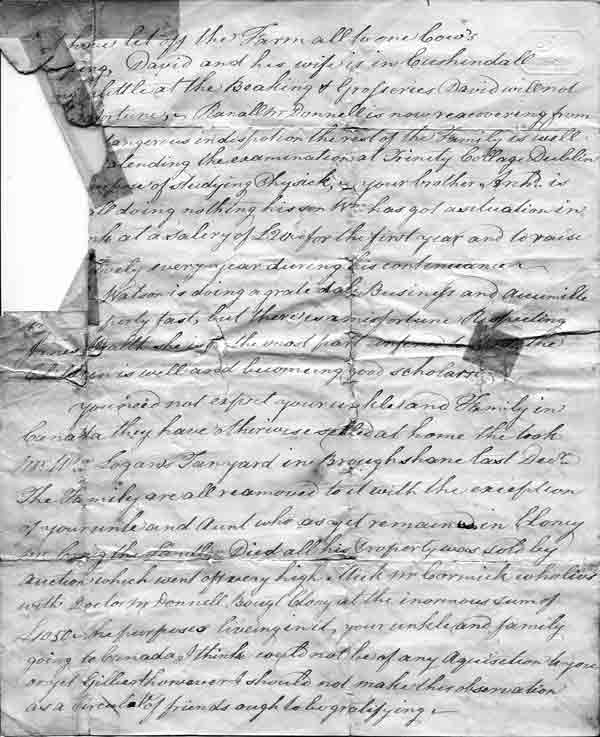 have let off the Farm all to one Cow's
David and his wife is in Cushendall
at the Beaking & Grosseries David will not
Ranall McDonnell is now reacovering from
dangerous indispotion the rest of the Family is well
atending the examination at Trinity Collage Dublin
of studying Physick, your brother Archd. is
doing nothing his son Wm has got a situation in
at a salery of £20 for the first year and to raise
every year during his continuance
Watson is doing a grate dale Business and
fast, but there is a mesfortune Respecting
she is the most part
is well and becomeing good scholars
you need not expect your unkle and Family in
Canada they have otherwise setled at home the took
Mr. Wm. Logans Tanyard in Broughshane last Decr.
The Family are all reamoved to it with the exception
of your unkle and Aunt who as yet remains in Cloney
Died all his Property was sold by
auction which went off very high Mick McCormick who lives
with Doctor McDonnell Bougt Clony at the inormous sum of
£1050 he purposes liveing in it, your unkle and family
going to Canada I think would not be of any Aquisetion to you
or yet Gilbert however I should not make this observation
as a of friends ough to be gratifying